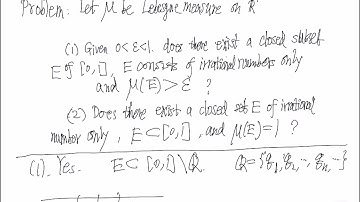 Problem: Let μ be Lebesgue measure on ℝ
(1) Given 0<ε<1. does there exist a closed subset
E of [0,1], E consists of irrational numbers only
and μ(E)>ε ?
(2) Does there exist a closed set E of irrational
number only, E⊂[0,1], and μ(E)=1 ?
(1). Yes. E⊂[0,1]\Q. Q={q₁,q₂,⋯,qₙ,⋯}